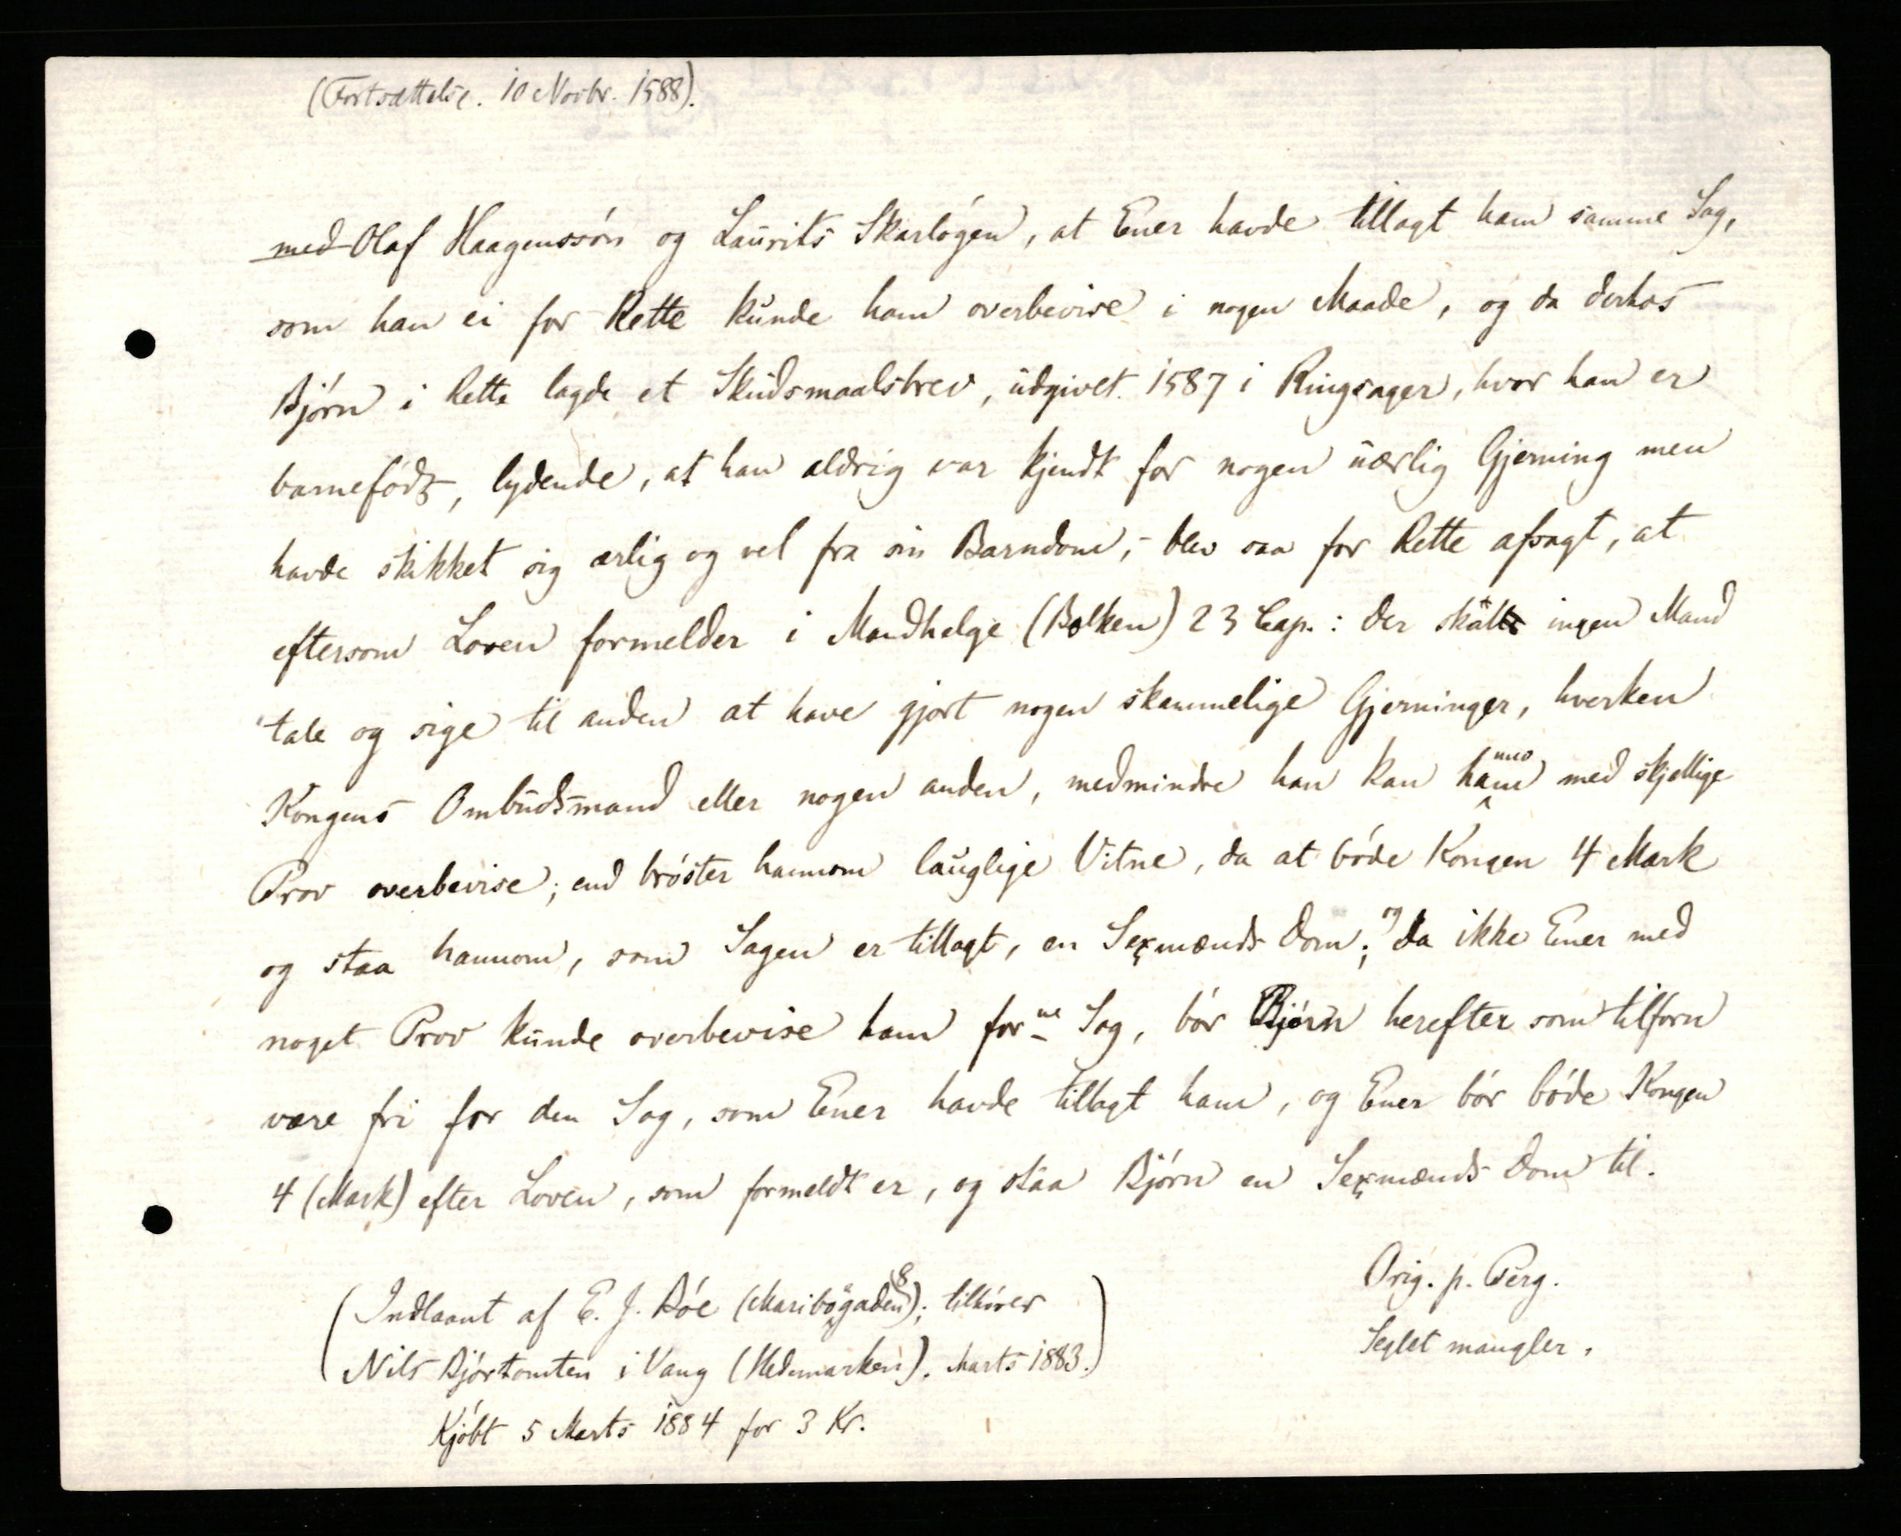 (Fortsættelse. 10 Novbr. 1588).
med Olaf Haagenssón og Laurits Skarlógen, at Ener havde tillagt ham samme Sag,
som han ei for Rette kunde ham overbevise i nogen Maade, og da derhos
Bjórn i Rette lagde et Skudsmaalsbrev, udgivet 1587 i Ringsager, hvor han er
barnefódt, lydende, at han aldrig var kjendt for nogen uærlig Gjerning men
havde skikket sig ærlig og vel fra sin Barndom, - blev saa for Rette afsagt, at
eftersom Loven formelder i Mandhelge (Bolken) 23 Cap.: der skal ingen Mand
tale og sige til anden at have gjort nogen skammelige Gjerninger, hverken
Kongens Ombudsmand eller nogen anden, medmindre han kan ham med skjellige
Prov overbevise; end bróster hannom lauglige Vitne, da at bóde Kongen 4 Mark
og staa hannom, som Sagen er tillagt, en Sexmænds Dom; og da ikke Ener med
noget Prov kunde overbevise ham forne Sag, bór Bjórn herefter som tilforn
være fri for den Sag, som Ener havde tillagt ham, og Ener bór bóde Kongen
4 (Mark) efter Loven, som formeldt er, og staa Bjórn en Sexmænds Dom til.
Orig. p. Perg.
Seglet mangler.
(Indlaant af E. J. Bóe (Maribogaden 8); tilhórer
Nils Bjórtomten i Vang (Hedemarken). Marts 1883.)
Kjóbt 5 Marts 1884 for 3 Kr.